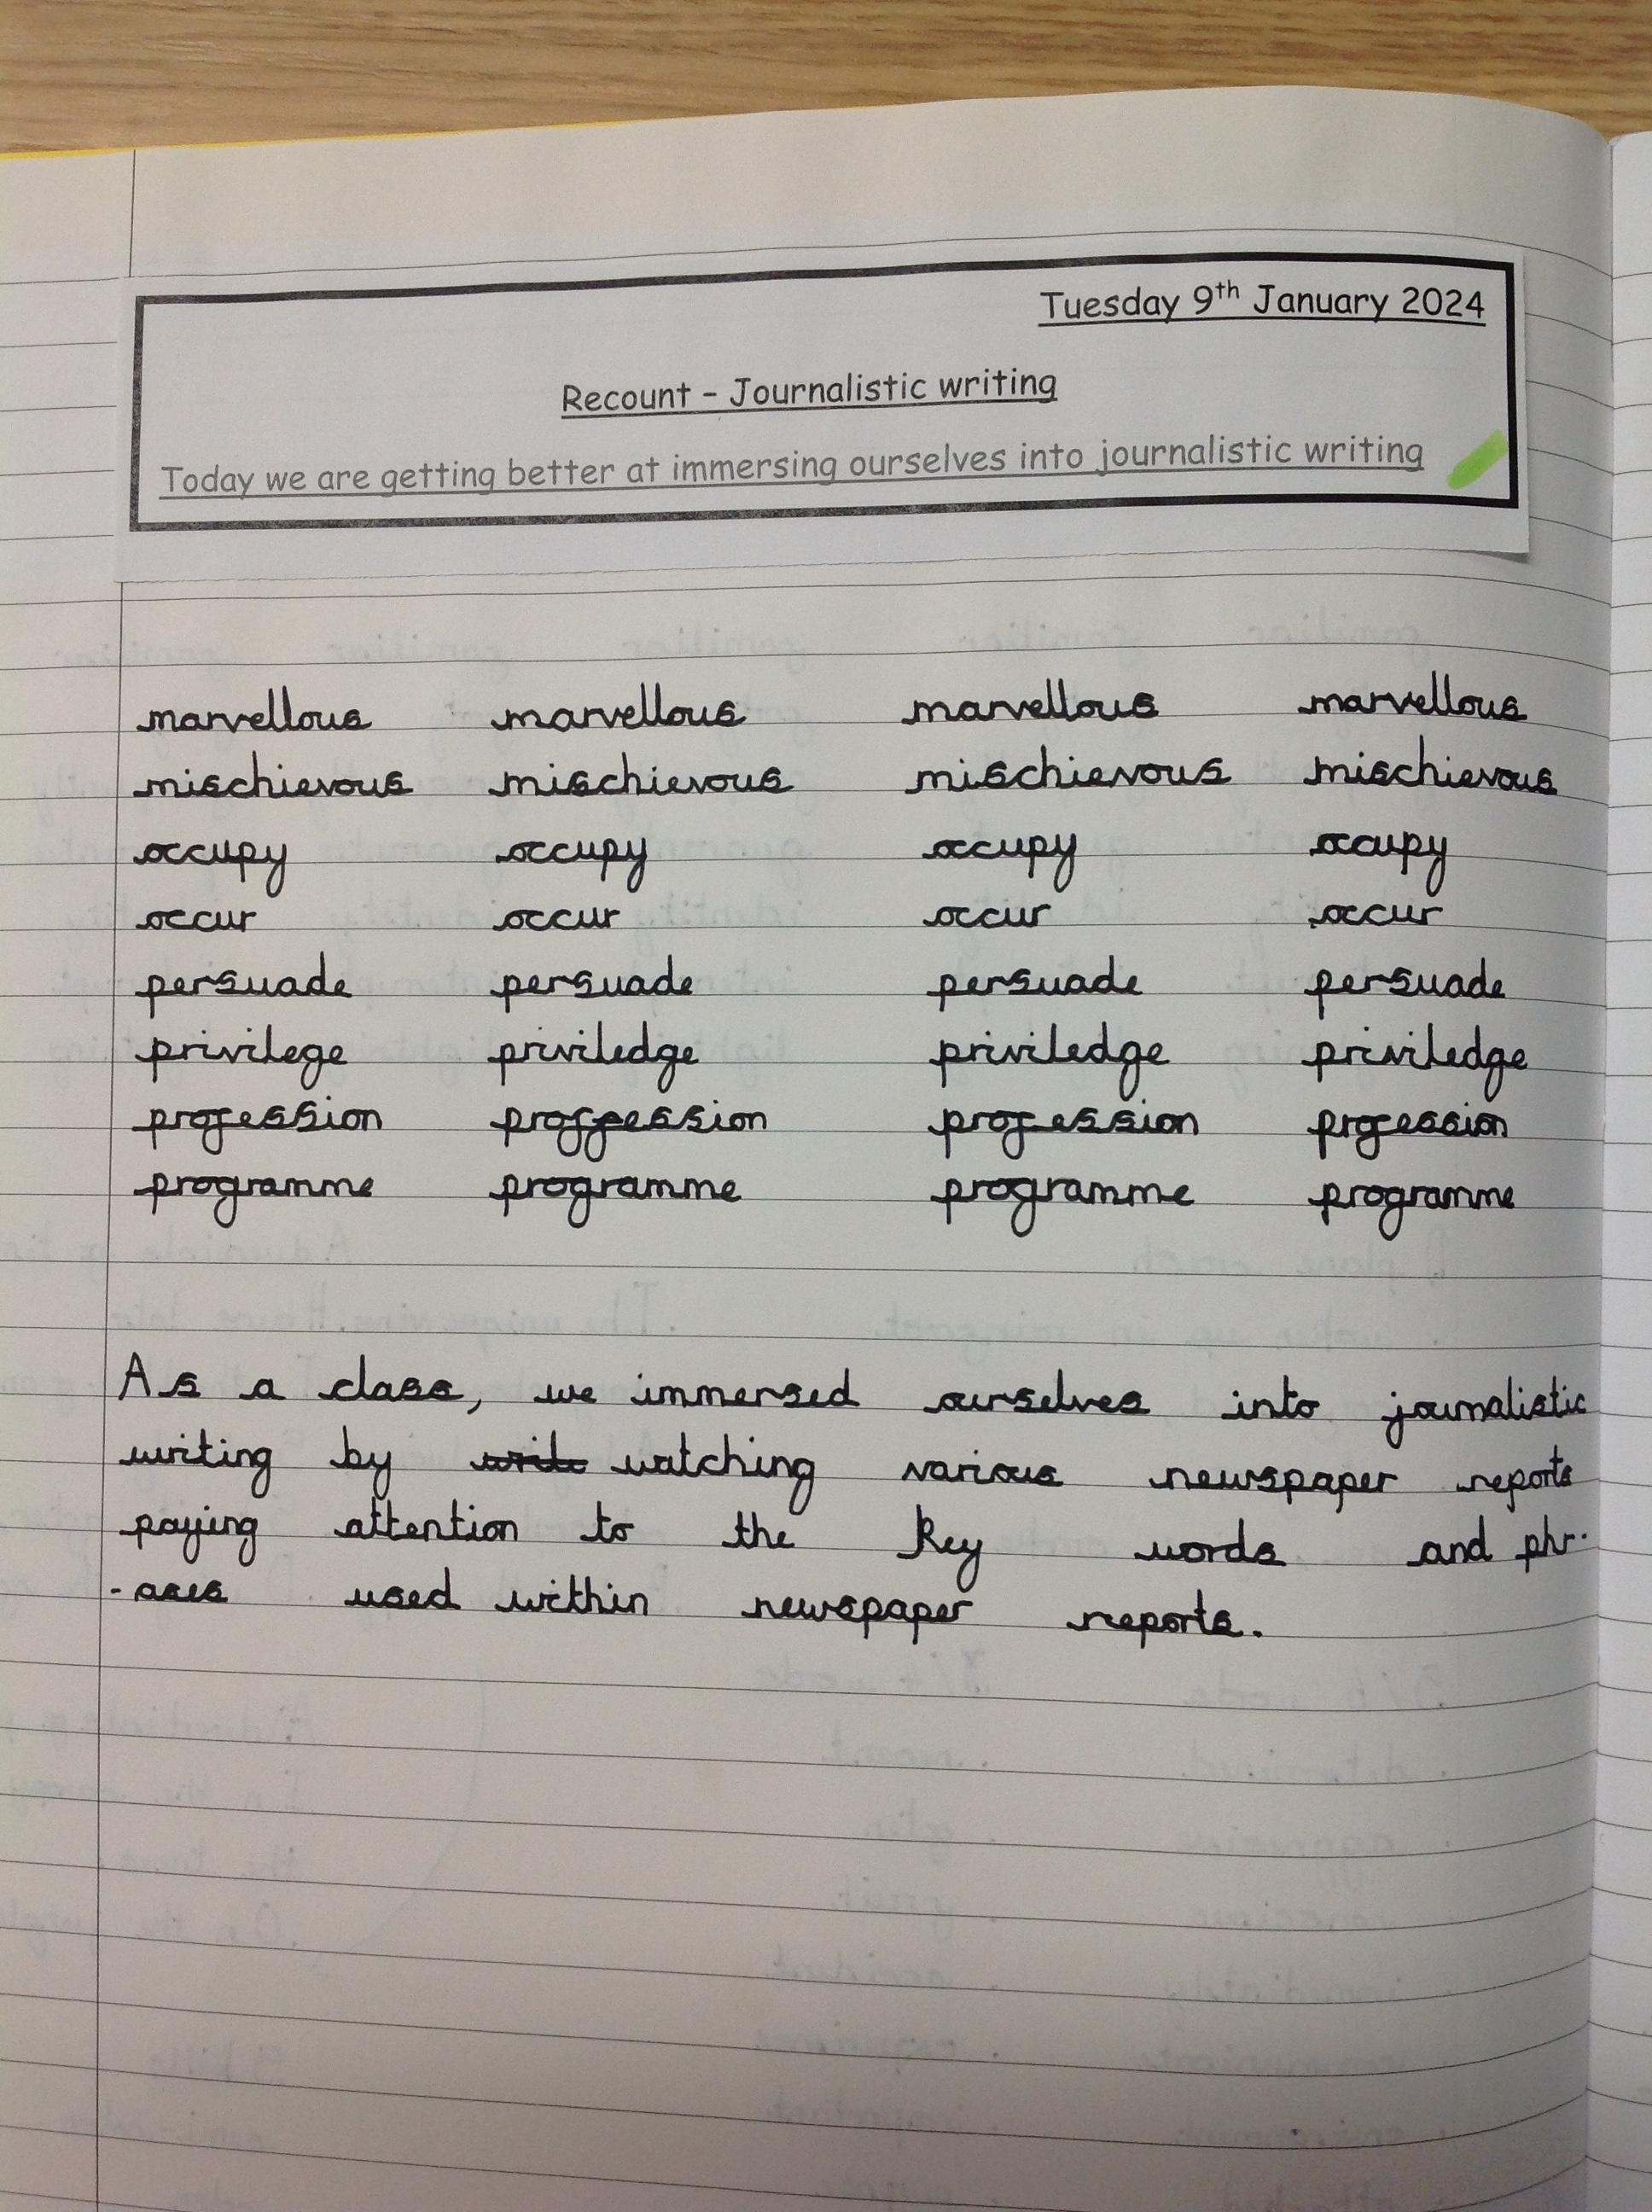 Tuesday 9th January 2024
Recount - Journalistic writing
Today we are getting better at immersing ourselves into journalistic writing
marvellous marvellous marvellous marvellous
mischievous mischievous mischievous mischievous
occupy occupy occupy occupy
occur occur occur occur
persuade persuade persuade persuade
privilege priviledge priviledge priviledge
profession proffession profession profession
programme programme programme programme
As a class, we immersed ourselves into journalistic
writing by write watching various newspaper reports
paying attention to the key words and phr-
-ases used within newspaper reports.